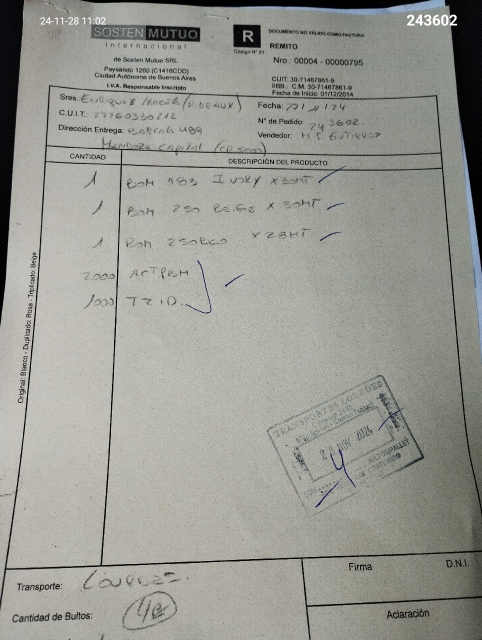 24-11-28 11:02
243602
SOSTEN MUTUO
internacional
de Sosten Mutuo SRL
Paysandú 1260 (C1416CDD)
Ciudad Autónoma de Buenos Aires
I.V.A. Responsable Inscripto
R
Código N° 91
DOCUMENTO NO VÁLIDO COMO FACTURA
REMITO
Nro.: 00004 - 00000795
CUIT: 30-71467861-9
IIBB.: C.M. 30-71467861-9
Fecha de Inicio: 01/12/2014
Sres.
Fecha:
C.U.I.T: 27260330212
N° de Pedido: 243602.
Dirección Entrega: 489
Vendedor: Gutierrez
Mendoza Capital (CP 5500)
CANTIDAD
DESCRIPCIÓN DEL PRODUCTO
1 BOM 983 IVORY x 30MT
1 BOM 250 BEIGE x 30MT
1 BOM 250 ECO x 28MT
2000
1000
Original: Blanco - Duplicado: Rosa - Triplicado: Beige
TRANSPORTES LOURDES
NOV 2024
Transporte: Lourdes
Cantidad de Bultos:
Firma
D.N.I.
Aclaración